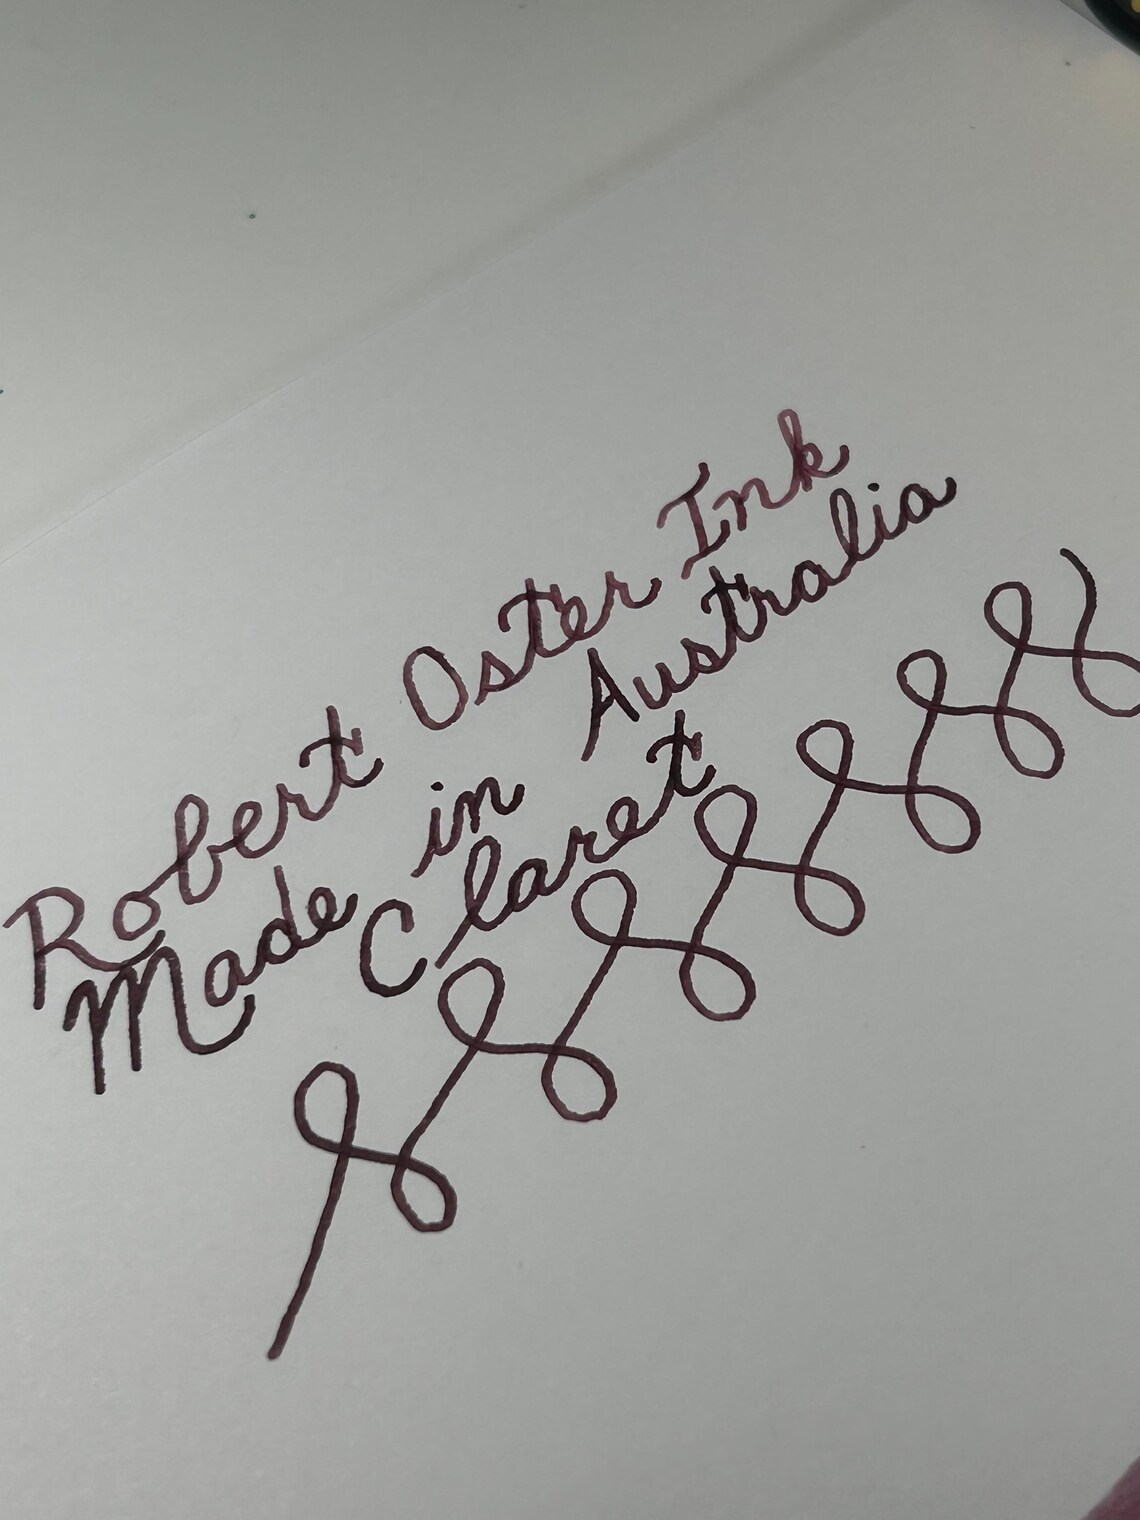 Robert Oster Ink
Made in Australia
Claret